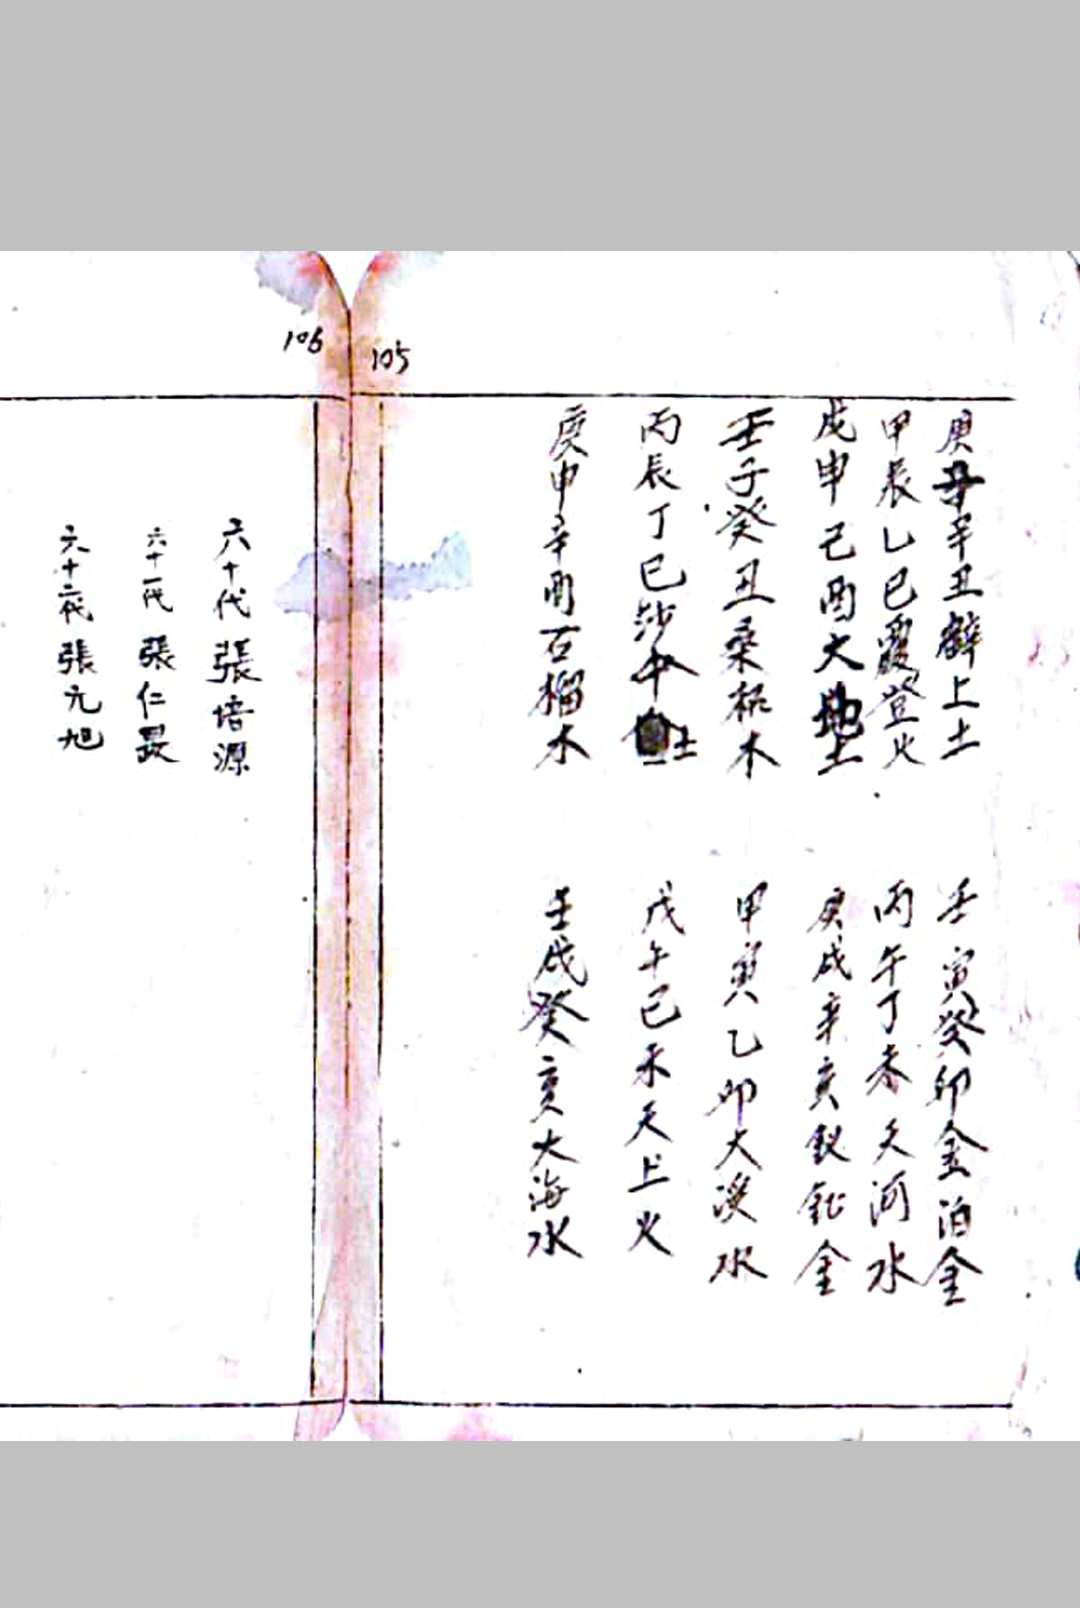 105
庚子辛丑壁上土
壬寅癸卯金泊金
甲辰乙巳霞登火
丙午丁未天河水
戊申己酉大地土
庚戌辛亥釵釧金
壬子癸丑桑柘木
甲寅乙卯大溪水
丙辰丁巳沙中土
戊午己未天上火
庚申辛酉石榴木
壬戌癸亥大海水
106
六十代 張培源
六十一代 張仁晸
六十二代 張元旭